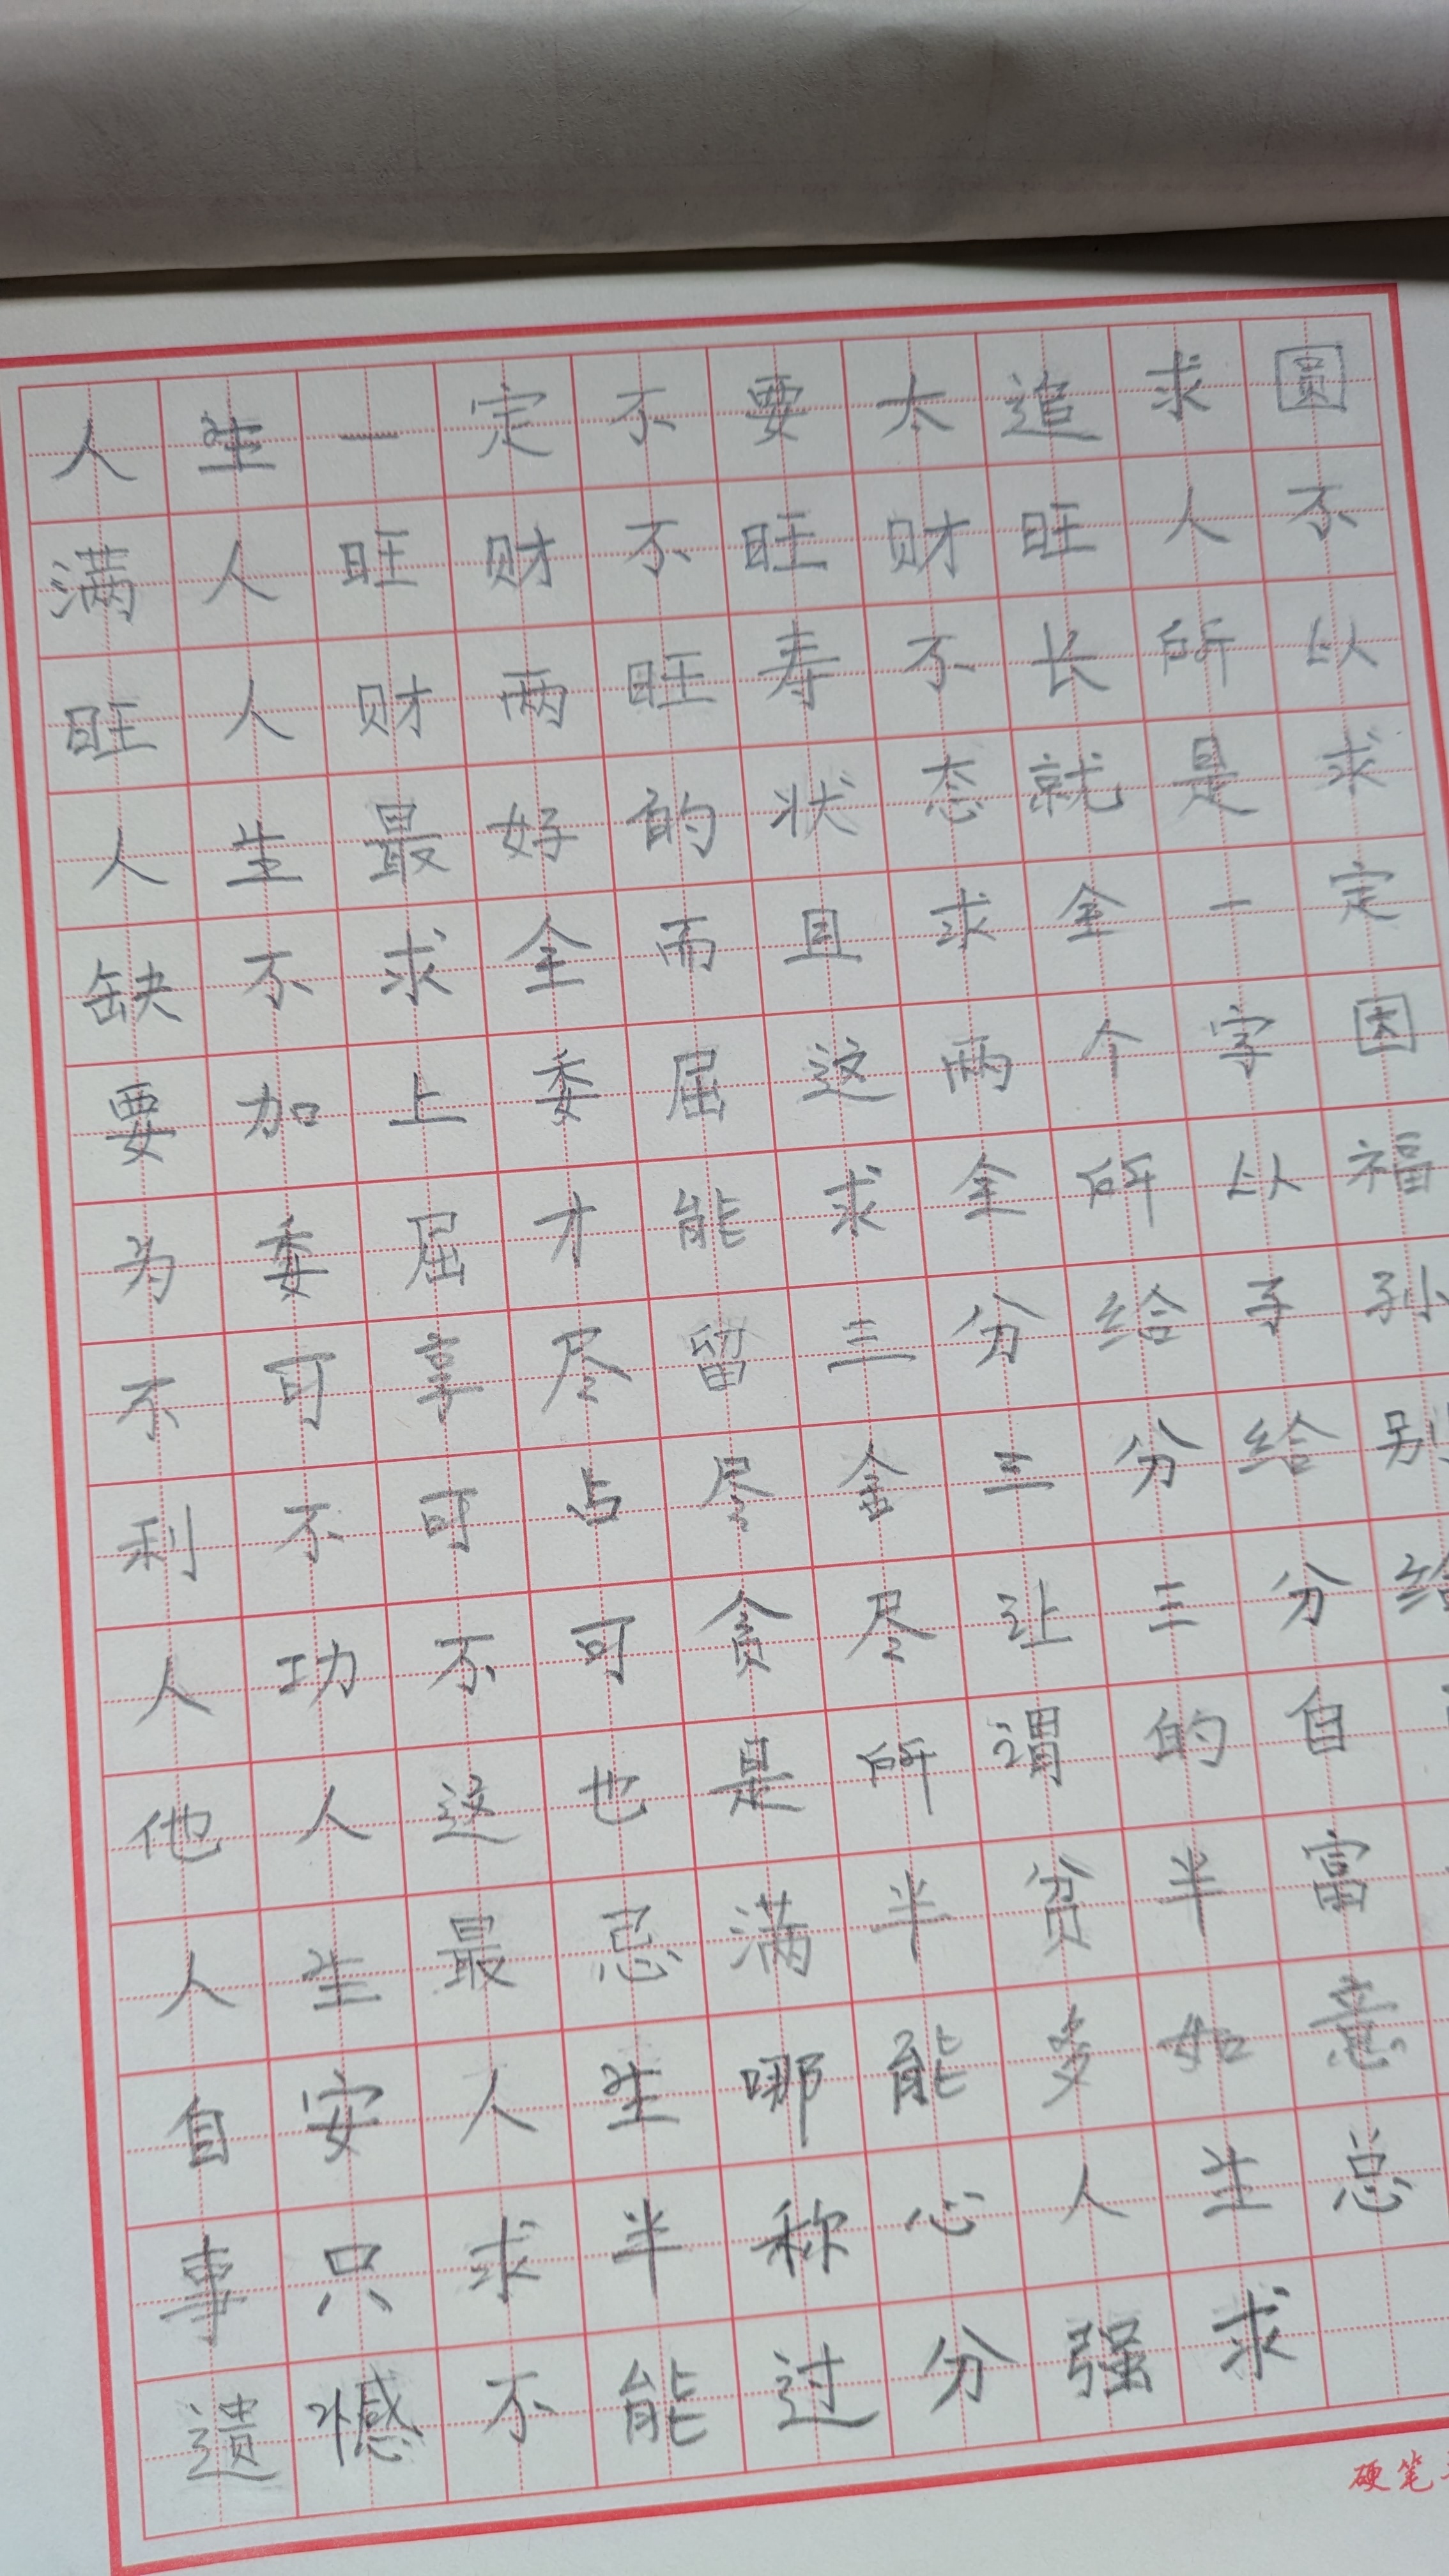 人生一定不要太追求圆
满人旺财不旺财旺人不
旺人财两旺寿不长所以
人生最好的状态就是求
缺不求全而且求全一定
要加上委屈这两个字因
为委屈才能求全所以福
不可享尽留三分给子孙
利不可占尽舍三分给别
人功不可贪尽让三分给
他人这也是所谓的自
人生最忌满半贫半富
自安人生哪能多如意
事只求半称心人生总
遗憾不能过分强求
硬笔